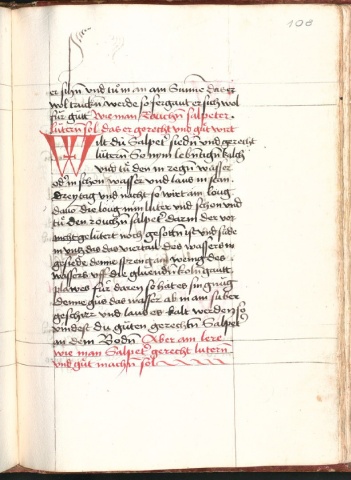 108
er sihn vnd tů in an ain Sunne das er
wol trucken werde so fergaut er sich wol
fur gůt Wie man Rauchn salpeter
lutern sol das er gerecht vnd gůt wirt
Wilt du Salpeter siedn vnd gerecht
lutern So nym lebendign kalch
vnd tů den in regn wasser
oder in schon wasser vnd laus in stan
drey tag vnd nacht so wirt ain loug
dauo die loug nim luter vnd schon vnd
tů den rouchn salpeter darin der vor
nicht gelutert noch gesotn ist vnd side
in vntz das das viertail des wassers in
gesiede denne spreng ain wenig des
wassers vff die gluendn koln gautt
blawes für daren so hat es sin gnůg
denne gus das wasser ab in ain suber
geschirr vnd laus es kalt werden so
vindest du guten gerechtn Salpeter
an dem Bodn Aber ain lere
wie man Salpeter gerecht lutern
vnd gůt machn sol